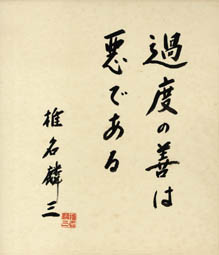 過度の善は
悪である
椎名麟三